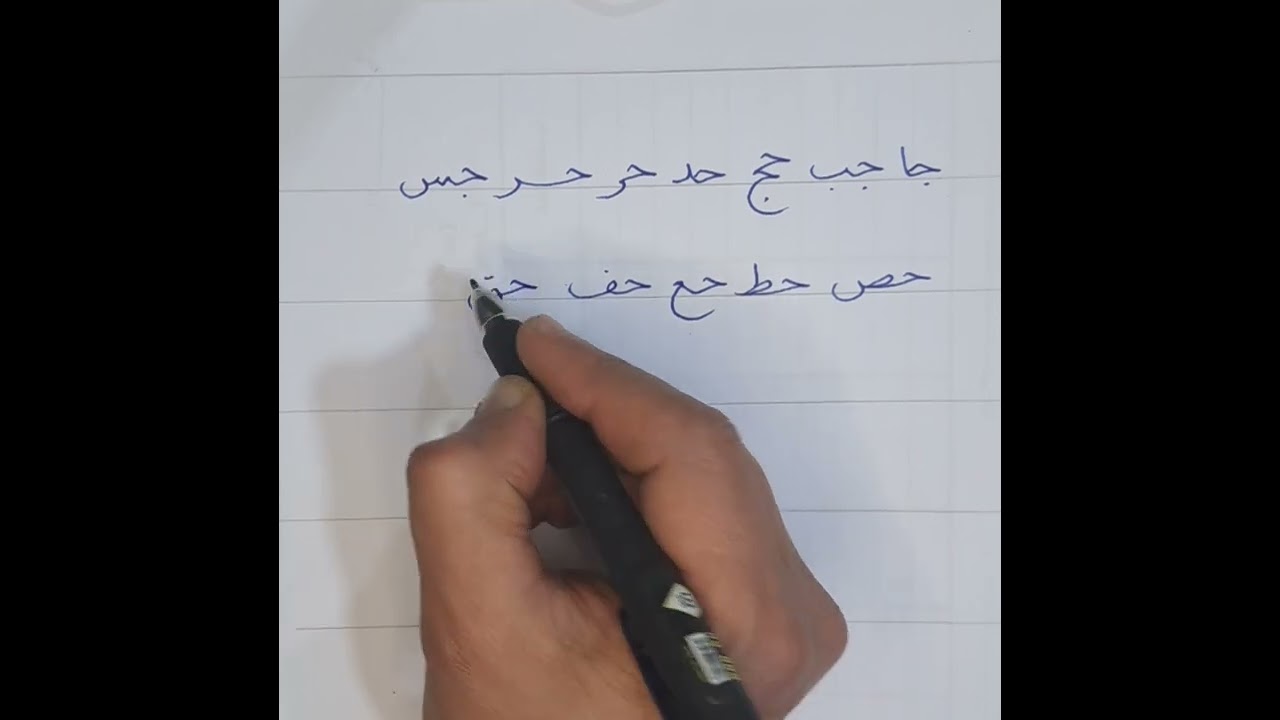 جا جب حج حد حر حر جس
حص حط حع حف حق